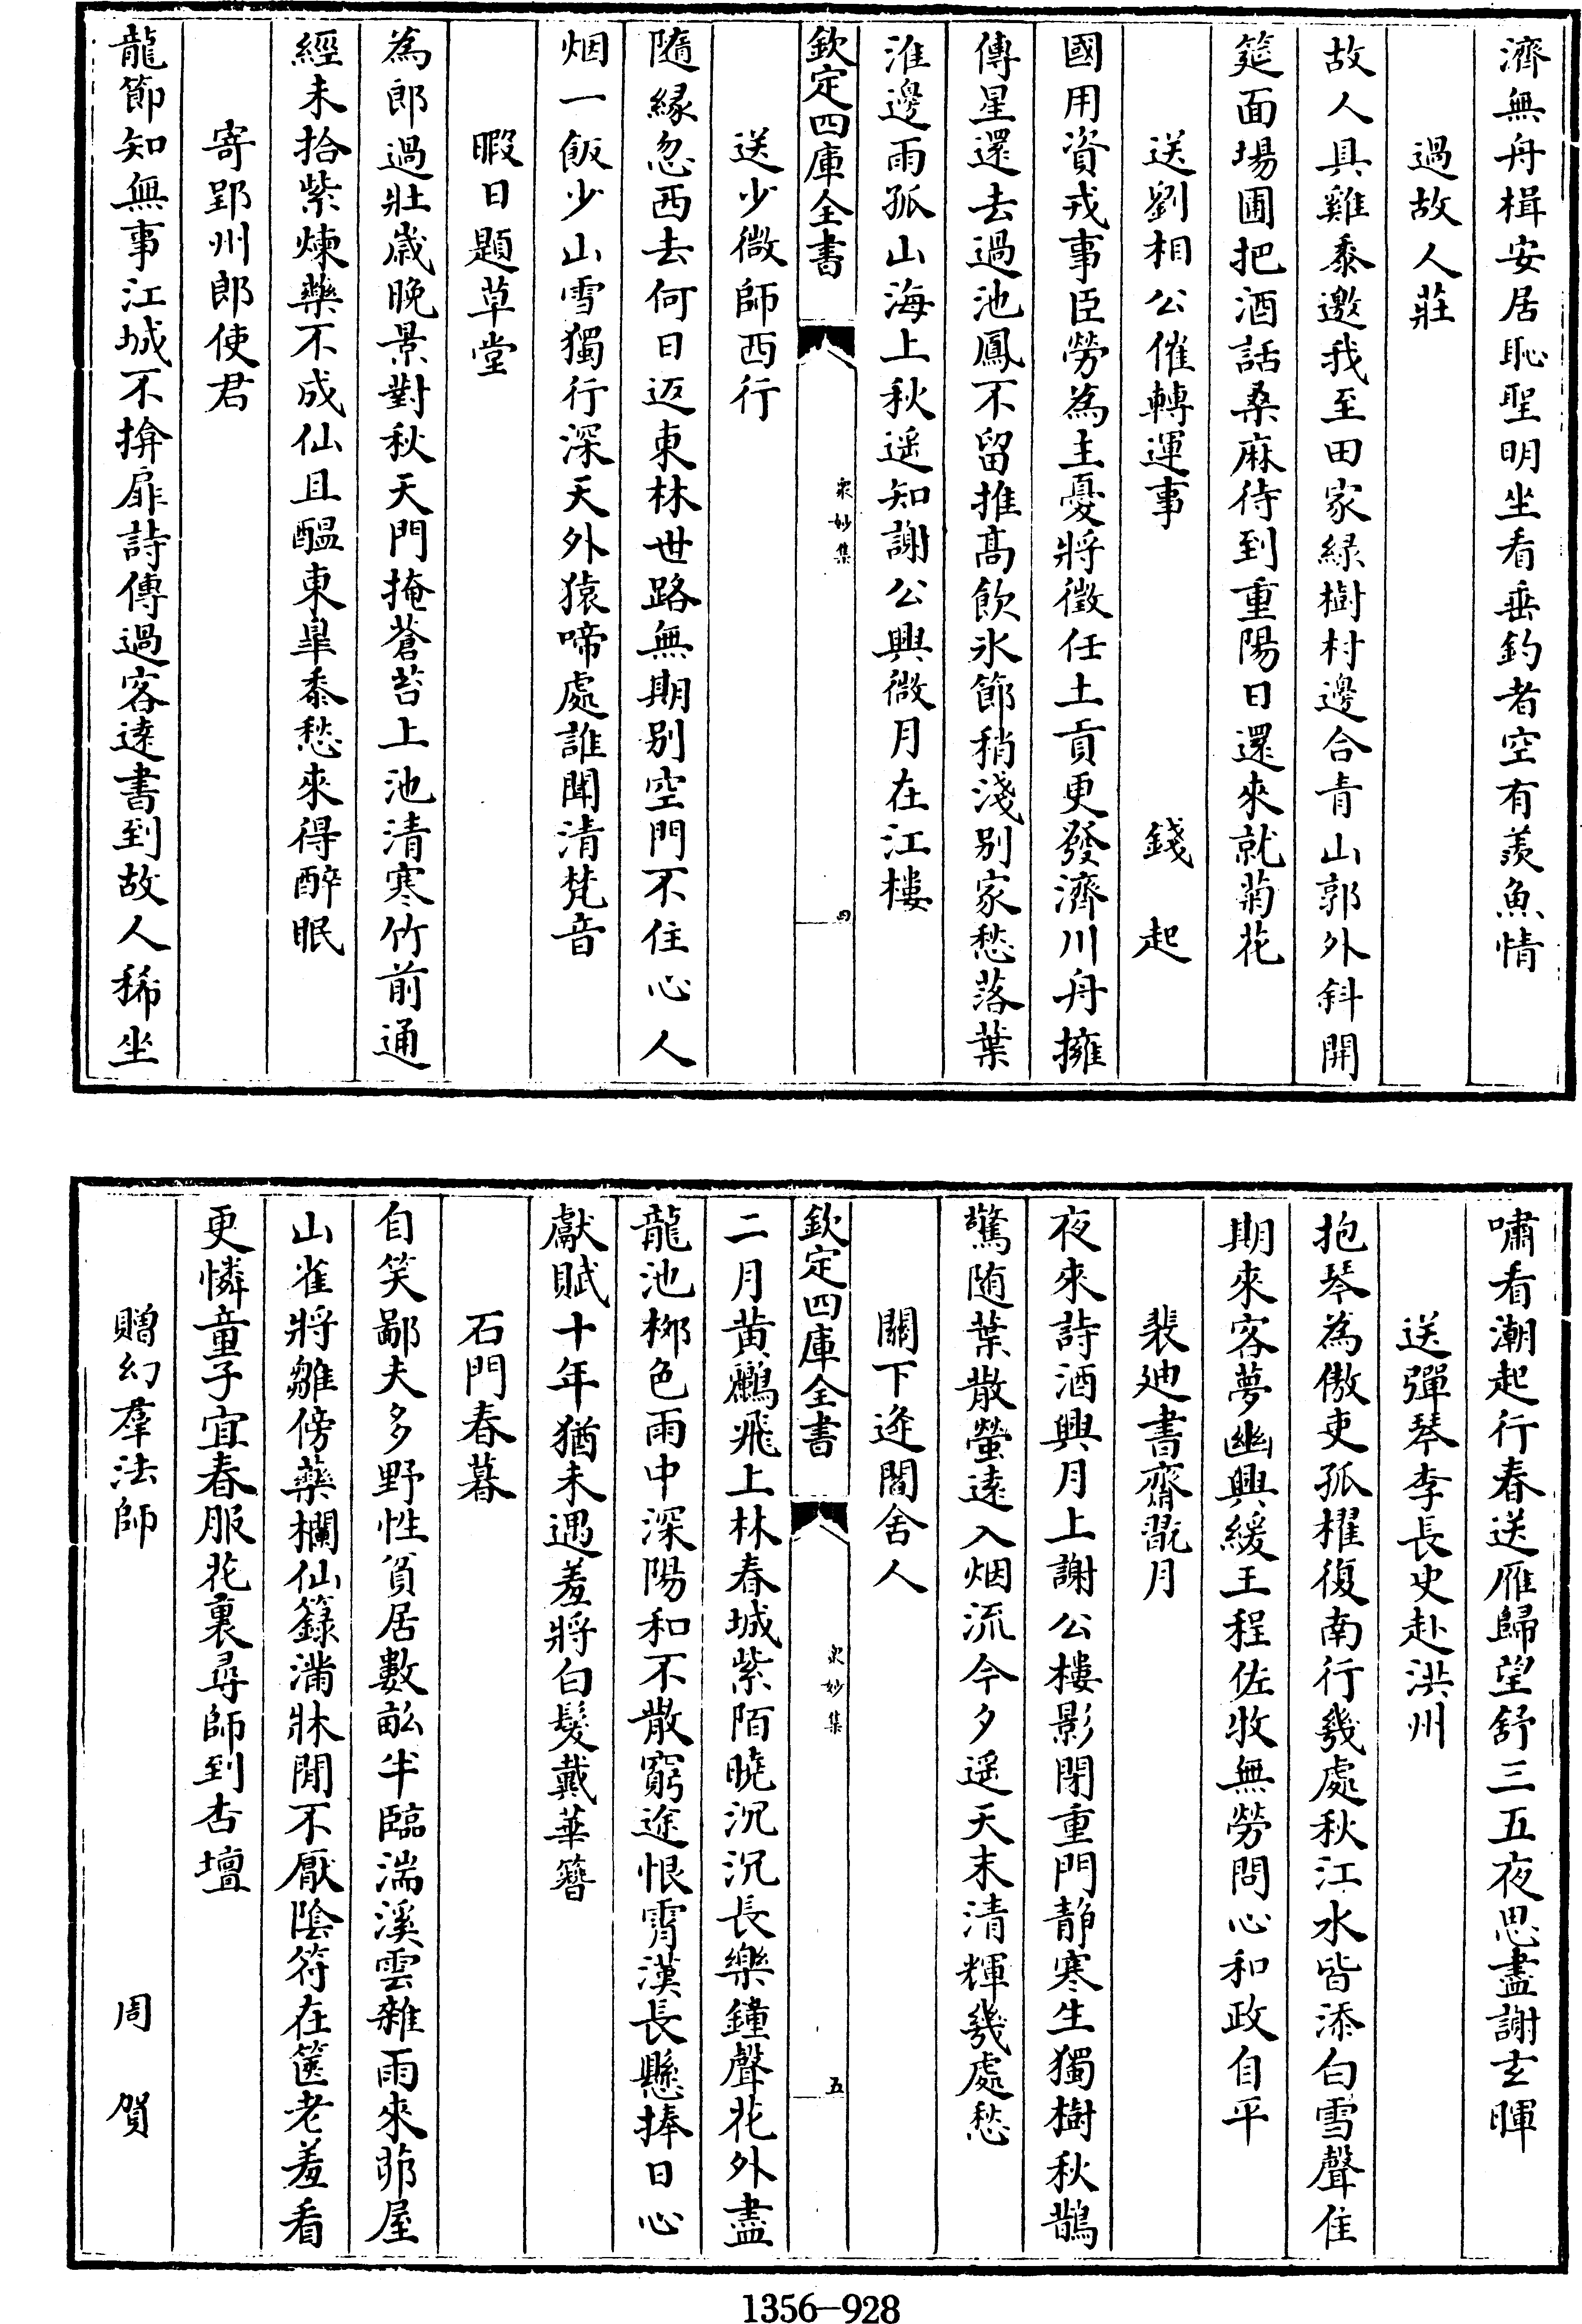 濟無舟楫安居恥聖明坐看垂釣者空有羨魚情
過故人莊
故人具雞黍邀我至田家綠樹村邊合青山郭外斜開
筵面場圃把酒話桑麻待到重陽日還來就菊花
送劉相公催轉運事 錢起
國用資戎事臣勞為主憂將徵任土貢更發濟川舟擁
傳星還去過池鳳不留推髙飲氷節稍淺别家愁落葉
淮邊雨孤山海上秋遥知謝公興微月在江樓
欽定四庫全書 衆妙集 四
送少微師西行
隨緣忽西去何日返東林世路無期别空門不住心人
烟一飯少山雪獨行深天外猿啼處誰聞清梵音
暇日題草堂
為郎過壯歲晚景對秋天門掩蒼苔上池清寒竹前通
經未拾紫煉藥不成仙且醖東臯黍愁來得醉眠
寄郢州郎使君
龍節知無事江城不揜扉詩傳過客逺書到故人稀坐
嘯看潮起行春送雁歸望舒三五夜思盡謝玄暉
送彈琴李長史赴洪州
抱琴為傲吏孤櫂復南行幾處秋江水皆添白雪聲佳
期來客夢幽興緩王程佐牧無勞問心和政自平
裴廸書齋翫月
夜來詩酒興月上謝公樓影閉重門静寒生獨樹秋鵲
驚随葉散螢遠入烟流今夕遥天末清輝幾處愁
闕下逄閻舍人
欽定四庫全書 衆妙集 五
二月黄鸝飛上林春城紫陌曉沉沉長樂鐘聲花外盡
龍池栁色雨中深陽和不散窮途恨霄漢長懸捧日心
獻賦十年猶未遇羞將白髮戴華簪
石門春暮
自笑鄙夫多野性貧居數畝半臨湍溪雲雜雨來茆屋
山雀將雛傍藥欄仙籙滿牀閒不厭陰符在篋老羞看
更憐童子宜春服花裏尋師到杏壇
贈幻羣法師 周賀
1356-928